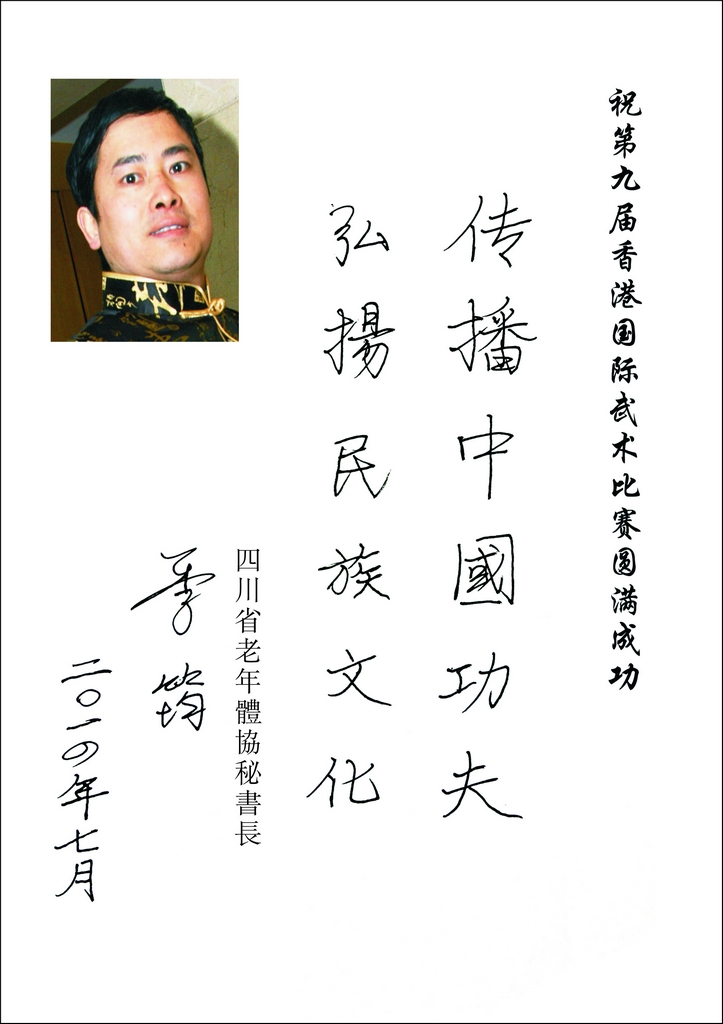 祝第九届香港国际武术比赛圆满成功
传播中國功夫
弘揚民族文化
四川省老年體協秘書長
季筠
二〇一四年七月